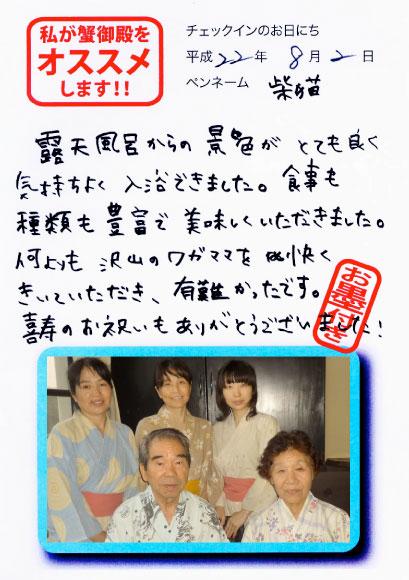 私が蟹御殿を
オススメ
します!!
チェックインのお日にち
平成22年 8月2日
ペンネーム 柴猫
露天風呂からの景色がとても良く
気持ちよく入浴できました。食事も
種類も豊富で美味しくいただきました。
何よりも沢山のワガママを心快く
きいていただき、有難かったです。
喜寿のお祝いもありがとうございました!
お墨付き